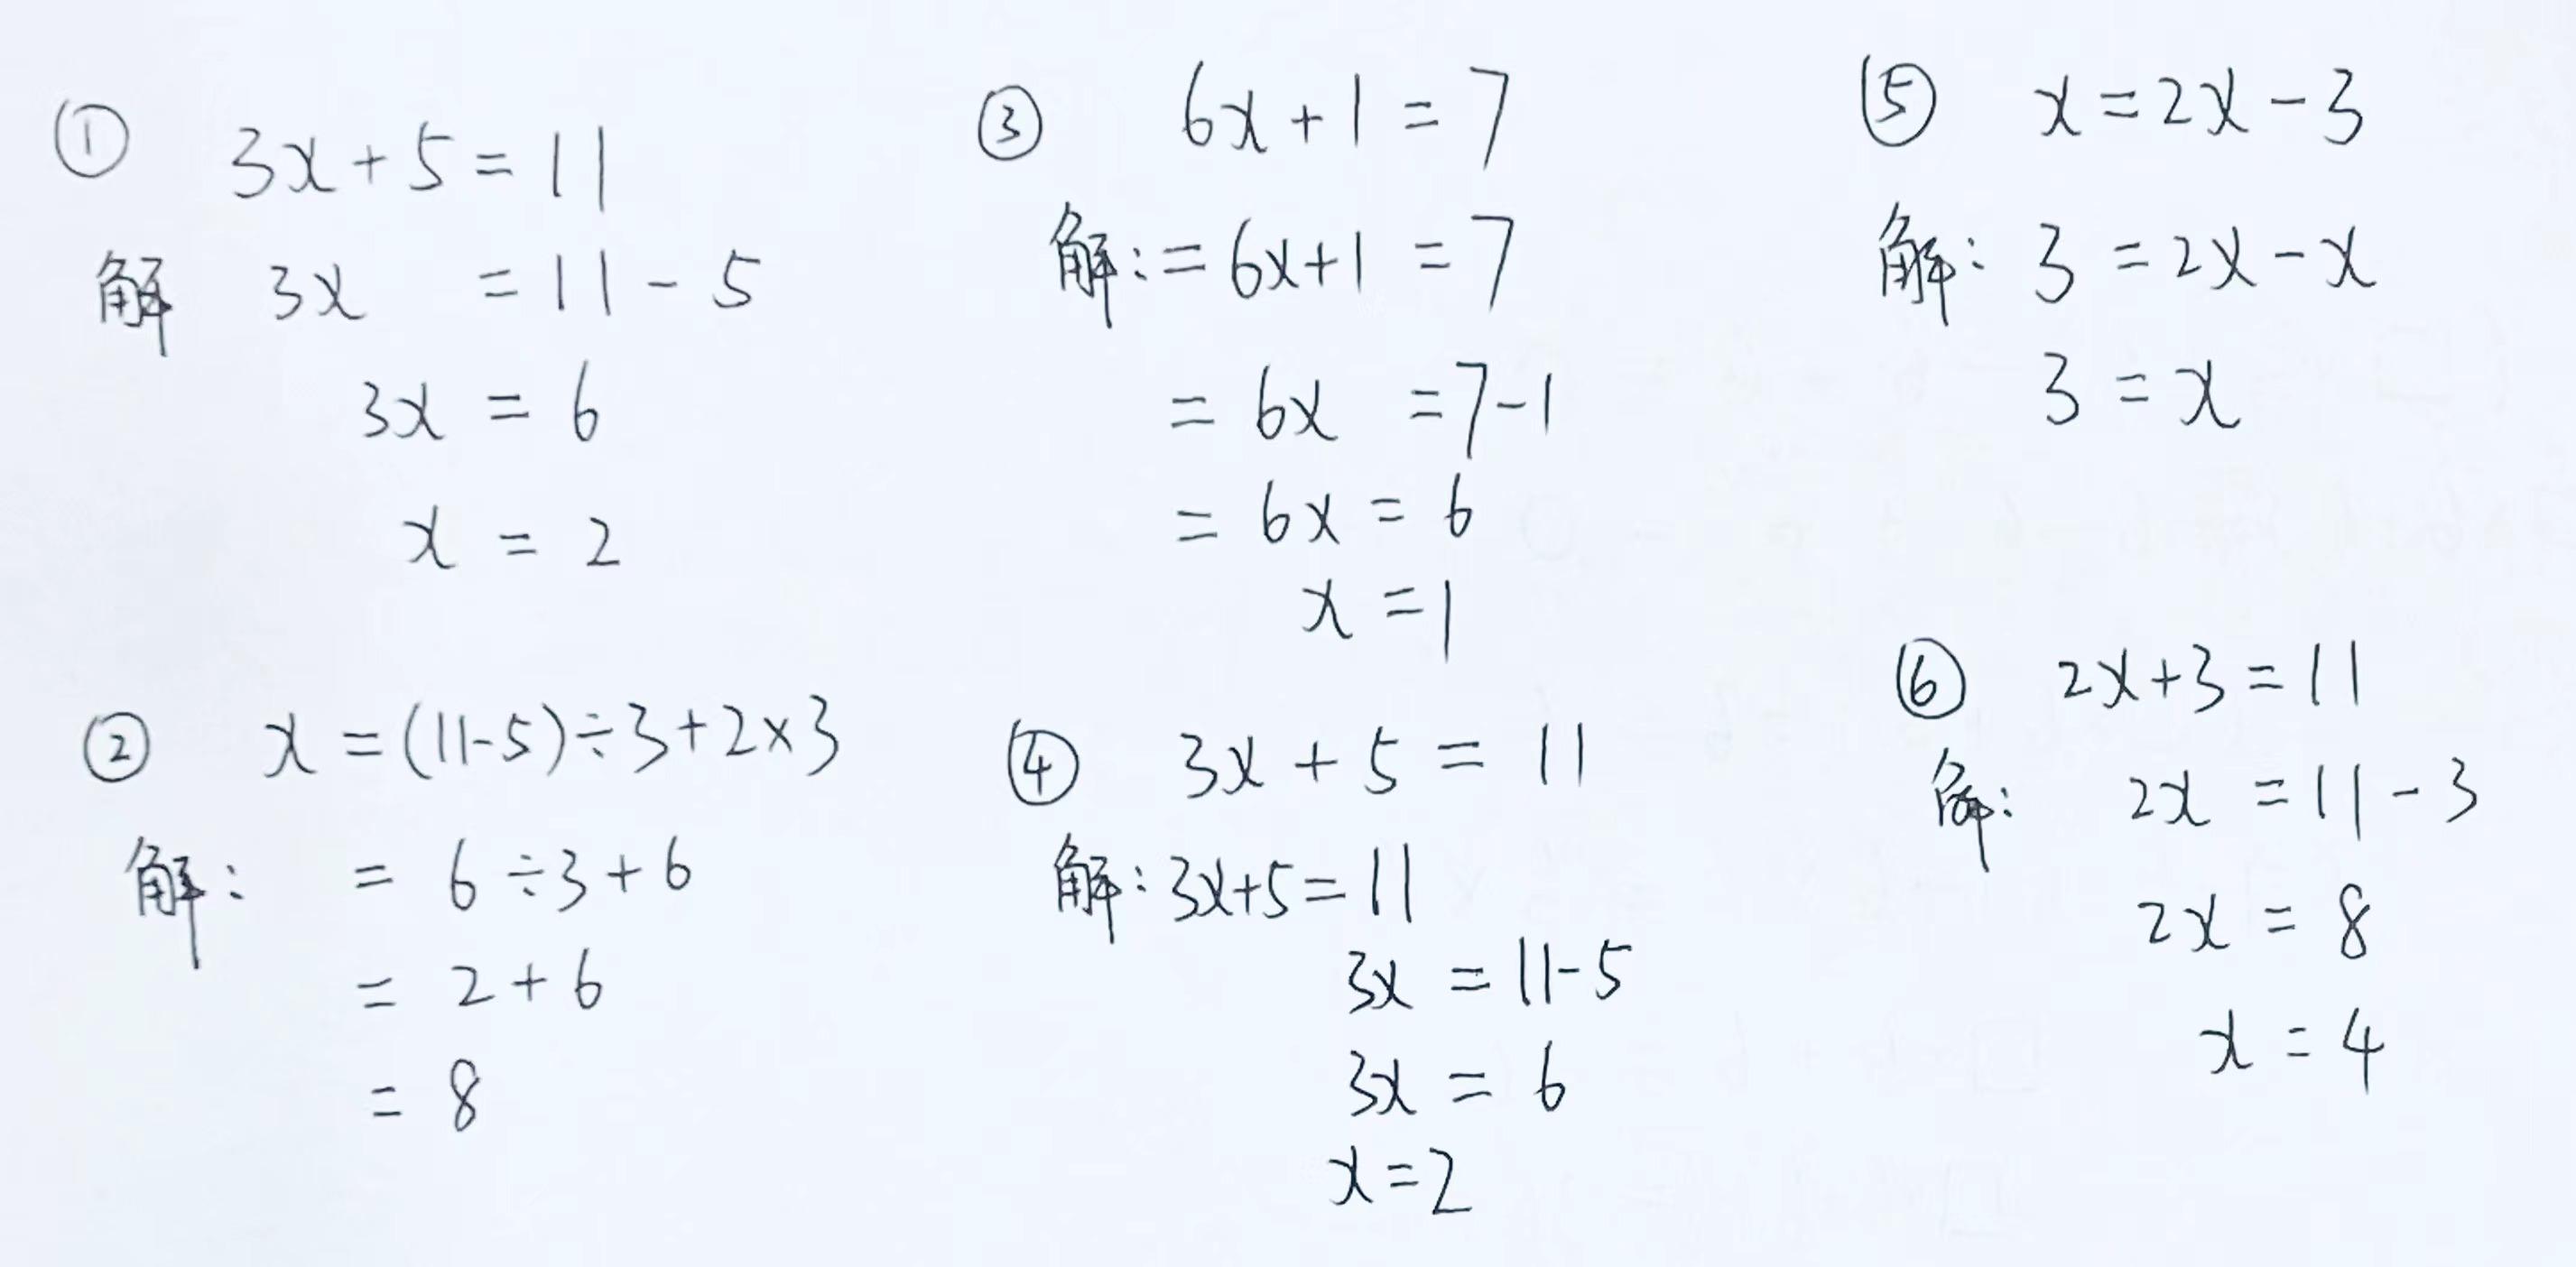 ① 3x+5=11
解 3x =11-5
3x = 6
x = 2
② x =(11-5)÷3+2×3
解: = 6÷3+6
= 2+6
= 8
③ 6x+1=7
解:=6x+1=7
= 6x =7-1
= 6x = 6
x =1
④ 3x + 5 = 11
解:3x+5=11
3x =11-5
3x = 6
x=2
⑤ x=2x-3
解: 3 =2x-x
3 =x
⑥ 2x+3=11
解: 2x =11-3
2x = 8
x = 4